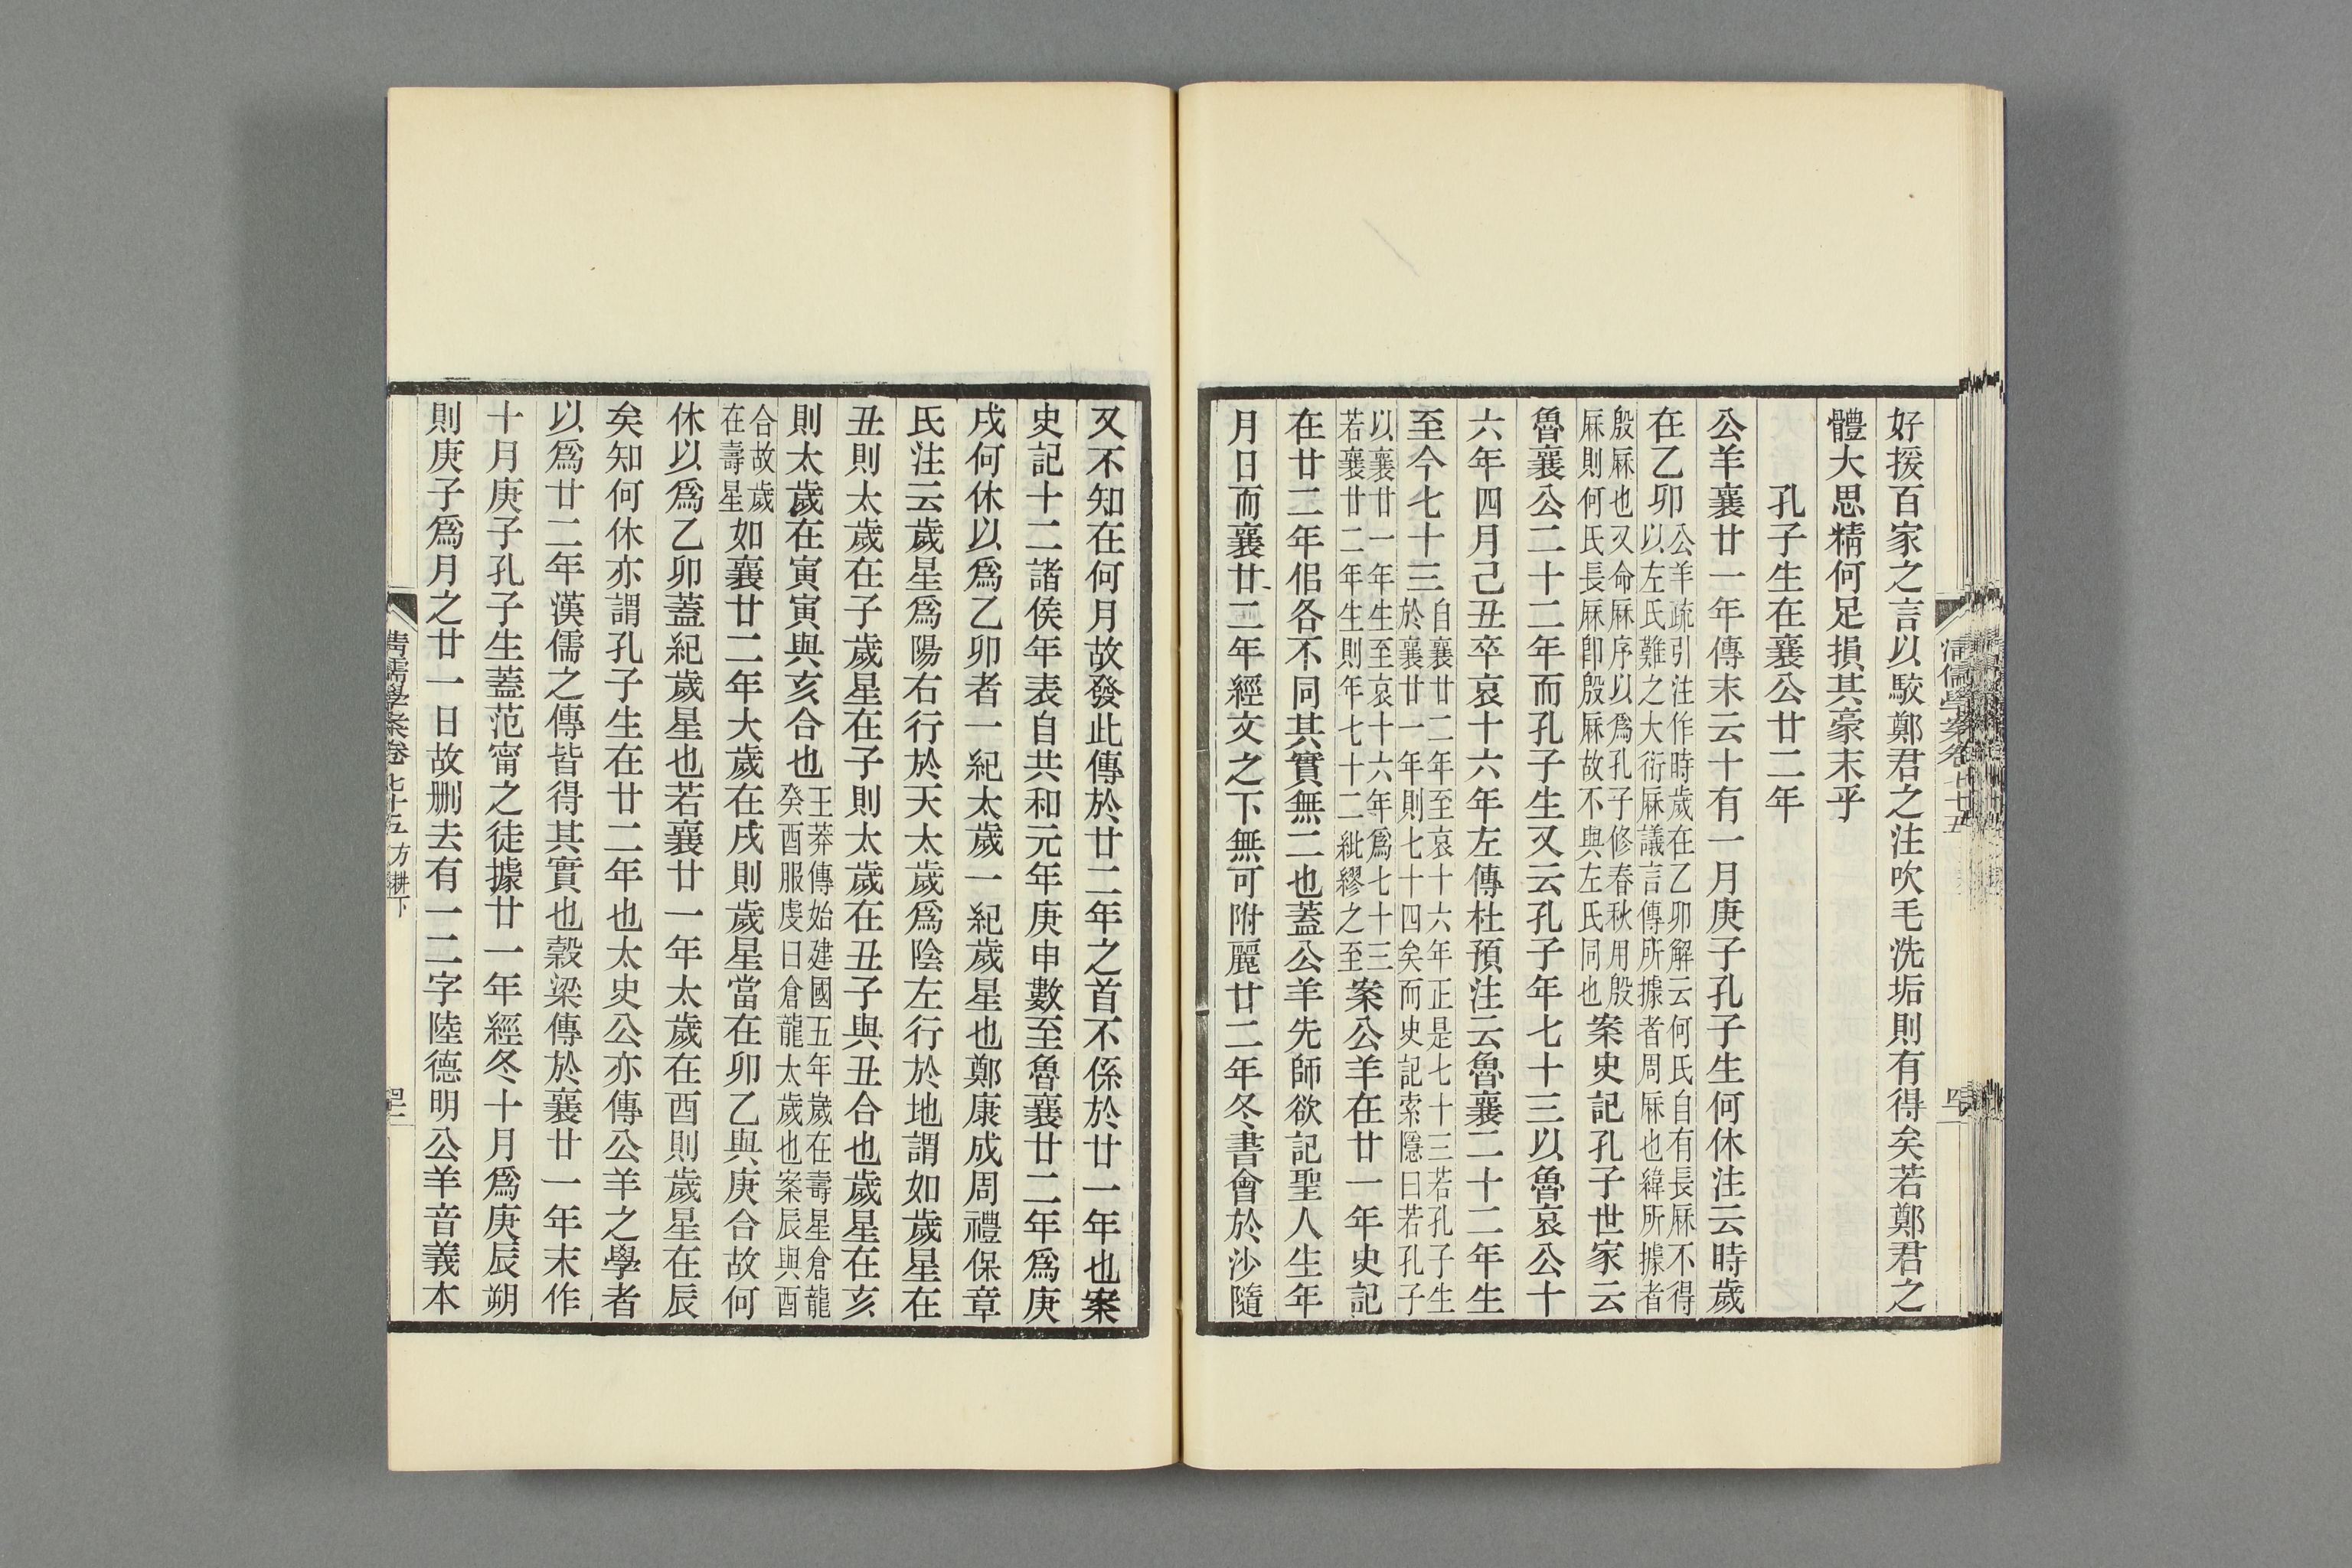 好援百家之言以駮鄭君之注吹毛洗垢則有得矣若鄭君之
體大思精何足損其豪末乎
孔子生在襄公廿二年
公羊襄廿一年傳末云十有一月庚子孔子生何休注云時歲
在乙卯公羊疏引注作時歲在乙卯解云何氏自有長厤不得以左氏難之大衍厤議言傳所據者周厤也緯所據者
殷厤也又命厤序以爲孔子修春秋用殷厤則何氏長厤卽殷厤故不與左氏同也案史記孔子世家云
魯襄公二十二年而孔子生又云孔子年七十三以魯哀公十
六年四月己丑卒哀十六年左傳杜預注云魯襄二十二年生
至今七十三自襄廿二年至哀十六年正是七十三若孔子生於襄廿一年則七十四矣而史記索隱曰若孔子
以襄廿一年生至哀十六年爲七十三若襄廿二年生則年七十二紕繆之至案公羊在廿一年史記
在廿二年佀各不同其實無二也蓋公羊先師欲記聖人生年
月日而襄廿二年經文之下無可附麗廿二年冬書會於沙隨
又不知在何月故發此傳於廿二年之首不係於廿一年也案
史記十二諸侯年表自共和元年庚申數至魯襄廿二年爲庚
戌何休以爲乙卯者一紀太歲一紀歲星也鄭康成周禮保章
氏注云歲星爲陽右行於天太歲爲陰左行於地謂如歲星在
丑則太歲在子歲星在子則太歲在丑子與丑合也歲星在亥
則太歲在寅寅與亥合也王莽傳始建國五年歲在壽星倉龍癸酉服虔曰倉龍太歲也案辰與酉
合故歲在壽星如襄廿二年大歲在戌則歲星當在卯乙與庚合故何
休以爲乙卯蓋紀歲星也若襄廿一年太歲在酉則歲星在辰
矣知何休亦謂孔子生在廿二年也太史公亦傳公羊之學者
以爲廿二年漢儒之傳皆得其實也穀梁傳於襄廿一年末作
十月庚子孔子生蓋范甯之徒據廿一年經冬十月爲庚辰朔
則庚子爲月之廿一日故刪去有一二字陸德明公羊音義本
清儒學案卷七十五 方耕下